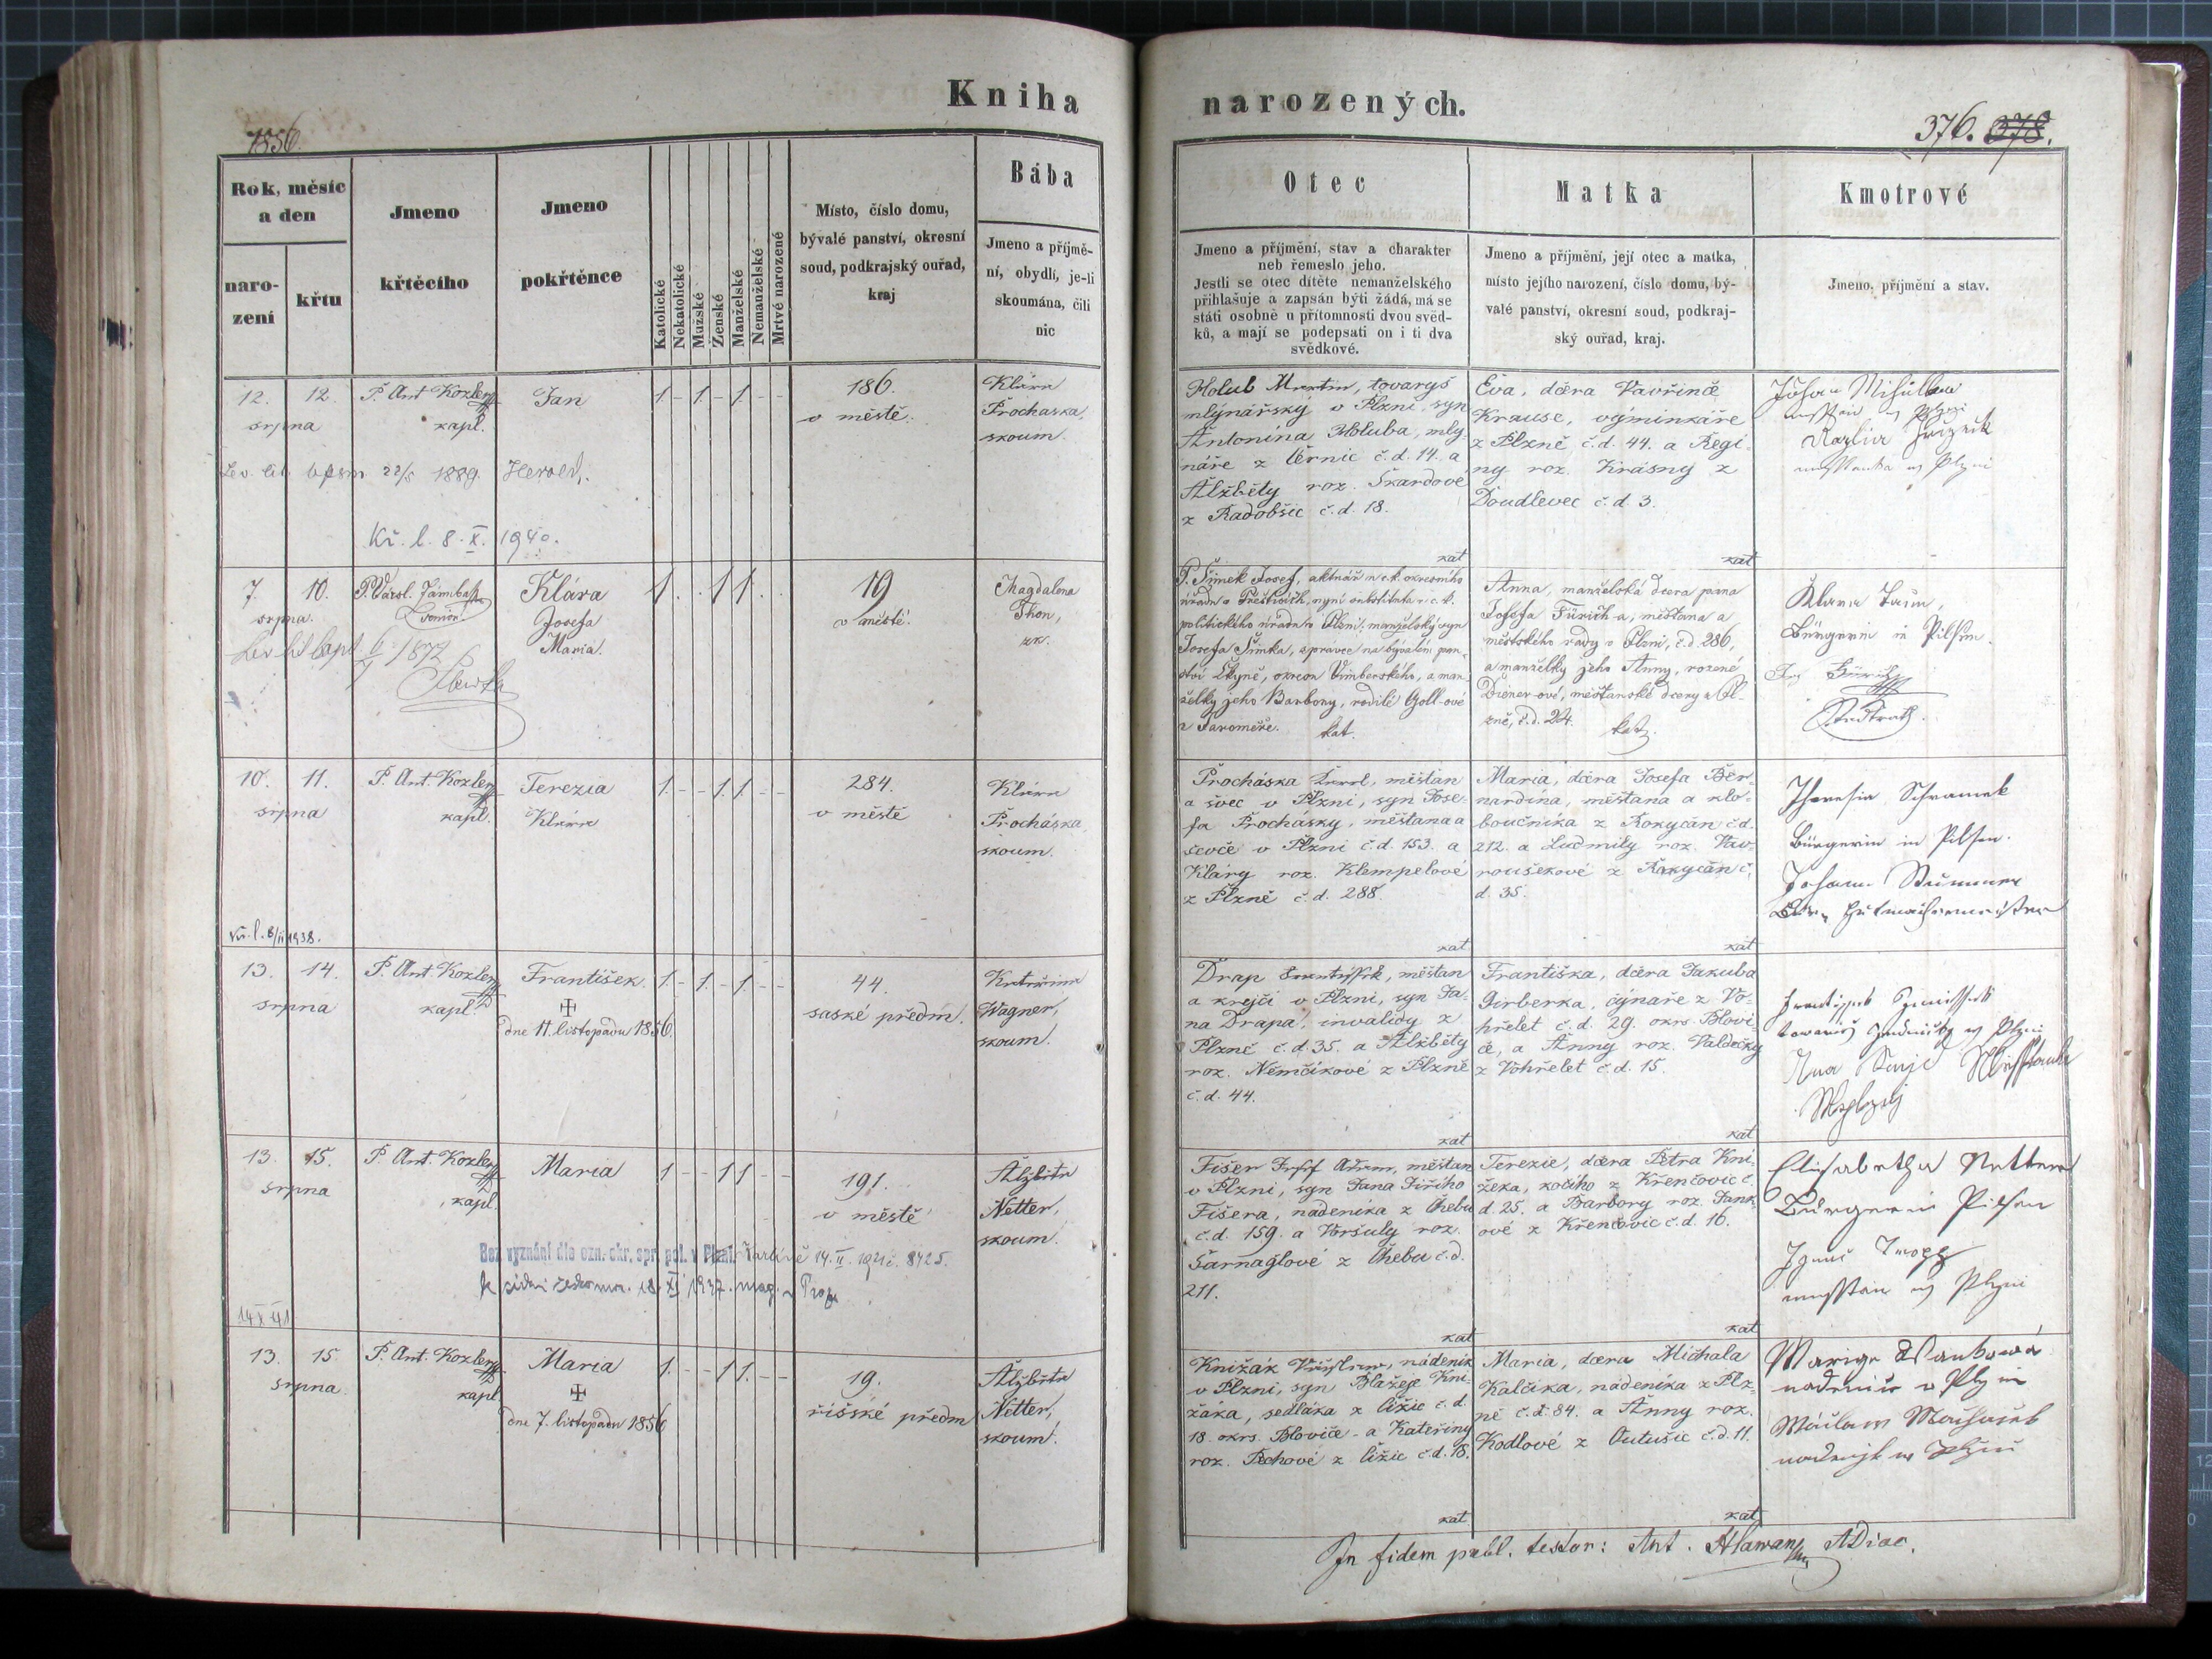 Kniha
narozených.
1856.
376. 378.
Rok, měsíc
a den
naro-
zení
křtu
Jmeno
křtěcího
Jmeno
pokřtěnce
Katolické
Nekatolické
Mužské
Ženské
Manželské
Nemanželské
Mrtvé narozené
Místo, číslo domu,
bývalé panství, okresní
soud, podkrajský ouřad,
kraj
Bába
Jmeno a příjmě-
ní, obydlí, je-li
skoumána, čili
nic
Otec
Jmeno a příjmění, stav a charakter
neb řemeslo jeho.
Jestli se otec dítěte nemanželského
přihlašuje a zapsán býti žádá, má se
státi osobně u přítomnosti dvou svěd-
ků, a mají se podepsati on i ti dva
svědkové.
Matka
Jmeno a příjmění, její otec a matka,
místo jejího narození, číslo domu, bý-
valé panství, okresní soud, podkraj-
ský ouřad, kraj.
Kmotrové
Jmeno, příjmění a stav.
12. 12.
srpna
P. Ant. Kozler
kapl.
Jan
1. - 1. - 1. - -
186.
v městě.
Klára
Prochaska,
skoum.
22/5 1889. Herold.
Kř. l. 8. X. 1940.
Holub Martin, tovaryš
mlýnářský v Plzni, syn
Antonína Holuba, mly-
náře z Černic č.d. 14. a
Alžběty roz. Škardové
z Radobšic č.d. 18.
kat
Eva, dcera Vavřince
Krause, výminkáře
z Plzně č.d. 44. a Regi-
ny roz. Krásny z
Doudlevec č.d. 3.
kat
Johan
w Plzni
7. 10.
srpna.
1872
Klára
Josefa
Maria.
1. . 1 1 . .
19
v městě.
Magdalena
Thon,
zk.
P. Šimek Josef, aktuár u c.k. okresního
úřadu v Přešticích, nyní substituta u c.k.
politického úřadu v Plzni, manželský syn
Josefa Šimka, správce na bývalém pan-
ství Čkyně, okresu Vimberského, a man-
želky jeho Barbory, rodilé Goll-ové
z Jaroměře. kat.
Anna, manželská dcera pana
Josefa Fürich-a, měštana a
městského rady v Plzni, č.d. 286,
a manželky jeho Anny, rozené
Diener-ové, měštanské dcery z Pl-
zně, č.d. 24. kat.
Klara
Bürgerin in Pilsen.
Jos. Fürich
Stadtrath.
10. 11.
srpna
P. Ant. Kozler
kapl.
Terezia
Klára
1. - - 1. 1 - -
284.
v městě
Klára
Procháska,
skoum.
Kř. l. 8/II 1938.
Procháska Karel, měštan
a švec v Plzni, syn Jose-
fa Prochásky, měštana a
ševce v Plzni č.d. 153. a
Kláry roz. Klempelové
z Plzně č.d. 288.
kat
Maria, dcera Josefa Ber-
nardina, měštana a klo-
boučníka z Rokycan č.d.
212. a Ludmily roz. Vav-
rouškové z Rokycan č.
d. 35.
kat
Theresia Schramek
Bürgerin in Pilsen.
Johann
13. 14.
srpna
P. Ant. Kozler
kapl.
František.
dne 11. listopadu 1856.
1. - 1. - 1. - -
44.
saské předm.
Kateřina
Wagner,
skoum.
Drap František, měštan
a krejčí v Plzni, syn Ja-
na Drapa, invalidy z
Plzně č.d. 35. a Alžběty
roz. Němčíkové z Plzně
č.d. 44.
kat
Františka, dcera Jakuba
Girberka, cýnaře z Vo-
hřelet č.d. 29. okrs. Blovi-
ce, a Anny roz. Valdecky
z Vohřelet č.d. 15.
kat
w Plzni
13. 15.
srpna
P. Ant. Kozler
kapl.
Maria
1 - - 1 1 - -
191.
v městě
Alžběta
Netter,
skoum.
Bez vyznání dle ozn. okr. spr. pol. v Plzni. 14. II. 1921 č. 8425.
18. XI 1937. mag. v Praze
14 X 41
Fišer Josef Adam, měštan
v Plzni, syn Jana Jiřího
Fišera, nádeníka z Chebu
č.d. 159. a Voršuly roz.
Šarnaglové z Chebu č.d.
211.
kat
Terezie, dcera Petra Kní-
žeka, kočího z Křenčovic č.
d. 25. a Barbory roz. Jank-
ové z Křenčovic č.d. 16.
kat
Elisabetha Netter
Bürgerin in Pilsen
Ignac Tropp
w Plzni
13. 15.
srpna.
P. Ant. Kozler
kapl
Maria
dne 7. listopadu 1856
1. - - 1 1. - -
19.
říšské předm
Alžběta
Netter,
skoum.
v Plzni, syn Blažeje Kni-
žáka, sedláka z Čižic č.d.
18. okrs. Blovice - a Kateřiny
roz. Pechové z Čižic č.d. 18.
kat
Maria, dcera Michala
Kalčíka, nádeníka z Plz-
ně č.d. 84. a Anny roz.
Kodlové z Outušic č.d. 11.
kat
v Plzni
In fidem publ. testor: Ant. Hlawan ADiac.